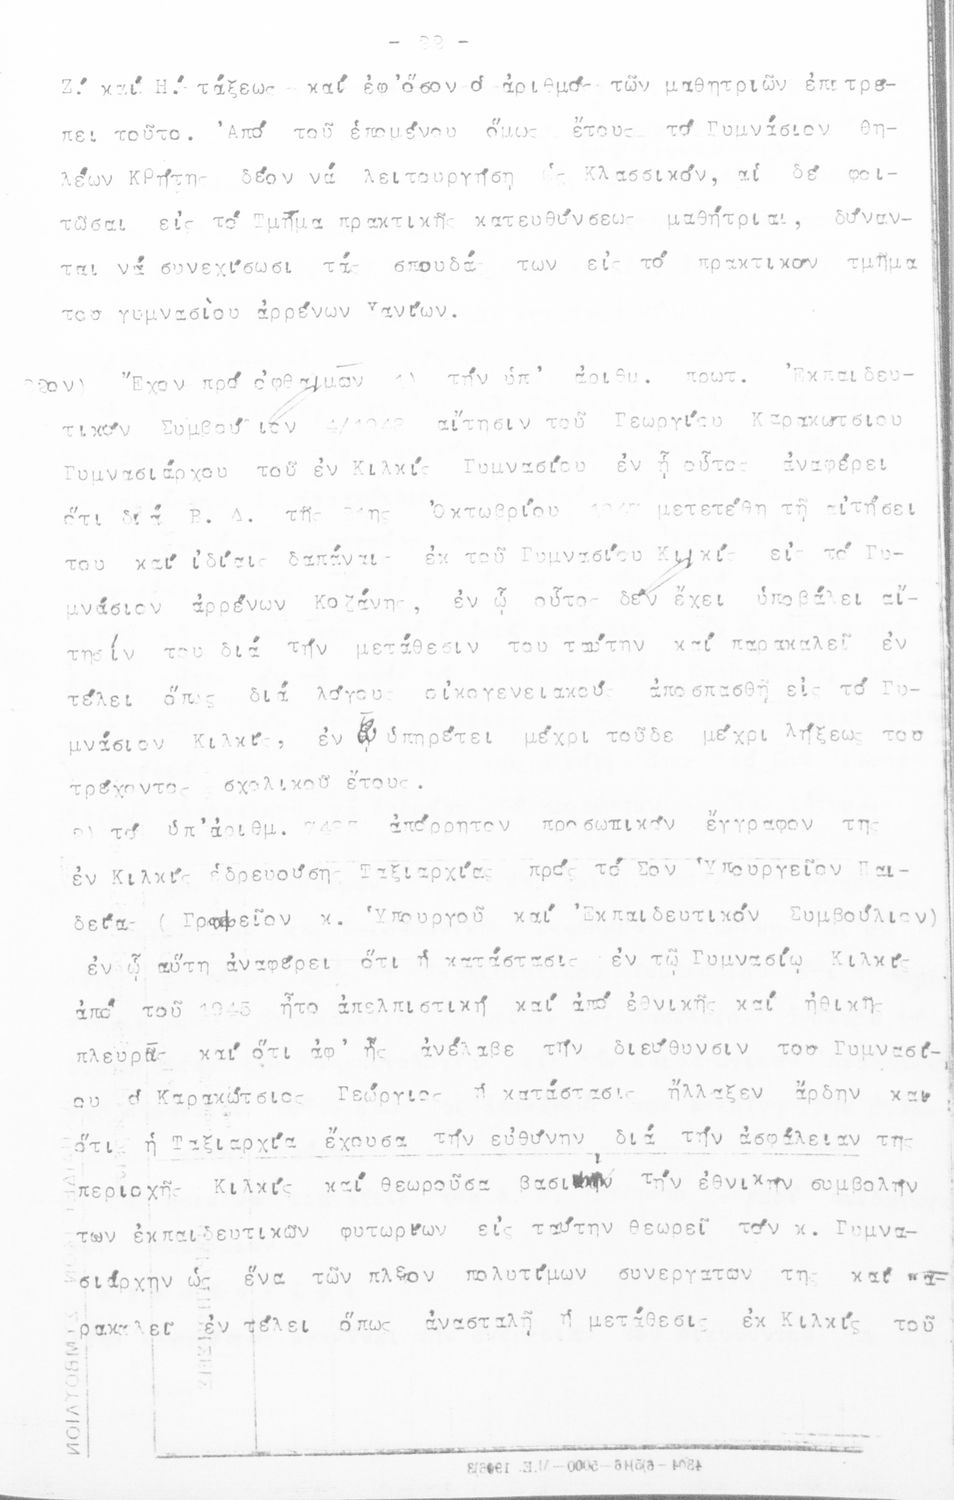 Ζ.' καί Η.' τάξεως καί ἐφ'ὅσον ὁ ἀριθμός τῶν μαθητριῶν ἐπιτρέ-
πει τοῦτο. 'Από τοῦ ἑπομένου ὅμως ἔτους τό Γυμνάσιον θη-
λέων ΚΡήτης δέον νά λειτουργήση ὡς Κλασσικόν, αἱ δέ φοι-
τῶσαι εἰς τό Τμῆμα πρακτικῆς κατευθύνσεως μαθήτριαι, δύναν-
ται νά συνεχίσωσι τάς σπουδάς των εἰς τό πρακτικον τμῆμα
του γυμνασίου ἀρρένων Χανίων.
Ἔχον πρό ὀφθαλμῶν τήν ὑπ' ἀριθμ. πρωτ. Ἐκπαιδευ-
τικόν Συμβούλιον 4/1948 αἴτησιν τοῦ Γεωργίου Καρακωτσιου
Γυμνασιάρχου τοῦ ἐν Κιλκίς Γυμνασίου ἐν ᾗ οὗτος ἀναφέρει
ὅτι διά Β. Δ. τῆς ης Ὀκτωβρίου μετετέθη τῇ αἰτήσει
του καί ἰδίαις δαπάναις ἐκ τοῦ Γυμνασίου Κιλκίς εἰς τό Γυ-
μνάσιον ἀρρένων Κοζάνης, ἐν ᾧ οὗτος δέν ἔχει ὑποβάλει αἴ-
τησίν του διά τήν μετάθεσιν του ταύτην καί παρακαλεῖ ἐν
τέλει ὅπως διά λόγους οἰκογενειακούς ἀποσπασθῇ εἰς τό Γυ-
μνάσιον Κιλκίς, ἐν ᾧ ὑπηρέτει μέχρι τοῦδε μέχρι λήξεως του
τρέχοντος σχολικοῦ ἔτους.
τό ὑπ'ἀριθμ. ἀπόρρητον προσωπικόν ἔγγραφον της
ἐν Κιλκίς ἑδρευούσης Ταξιαρχίας πρός τό Σον Ὑπουργεῖον Παι-
δείας ( Γραφεῖον κ. Ὑπουργοῦ καί Ἐκπαιδευτικόν Συμβούλιον)
ἐν ᾧ αὕτη ἀναφέρει ὅτι ἡ κατάστασις ἐν τῷ Γυμνασίῳ Κιλκίς
ἀπό τοῦ 1945 ἦτο ἀπελπιστική καί ἀπό ἐθνικῆς καί ἠθικῆς
πλευρᾶς καί ὅτι ἀφ' ἧς ἀνέλαβε τήν διεύθυνσιν του Γυμνασί-
ου ὁ Καρακώτσιος Γεώργιος ἡ κατάστασις ἤλλαξεν ἄρδην και
ὅτι ἡ Ταξιαρχία ἔχουσα τήν εὐθύνην διά τήν ἀσφάλειαν της
περιοχῆς Κιλκίς καί θεωροῦσα βασικήν τήν ἐθνικήν συμβολήν
των ἐκπαιδευτικῶν φυτωρίων εἰς ταύτην θεωρεῖ τόν κ. Γυμνα-
σιάρχην ὡς ἕνα τῶν πλέον πολυτίμων συνεργατων της καί πα-
ρακαλεῖ ἐν τέλει ὅπως ἀνασταλῇ ἡ μετάθεσις ἐκ Κιλκίς τοῦ